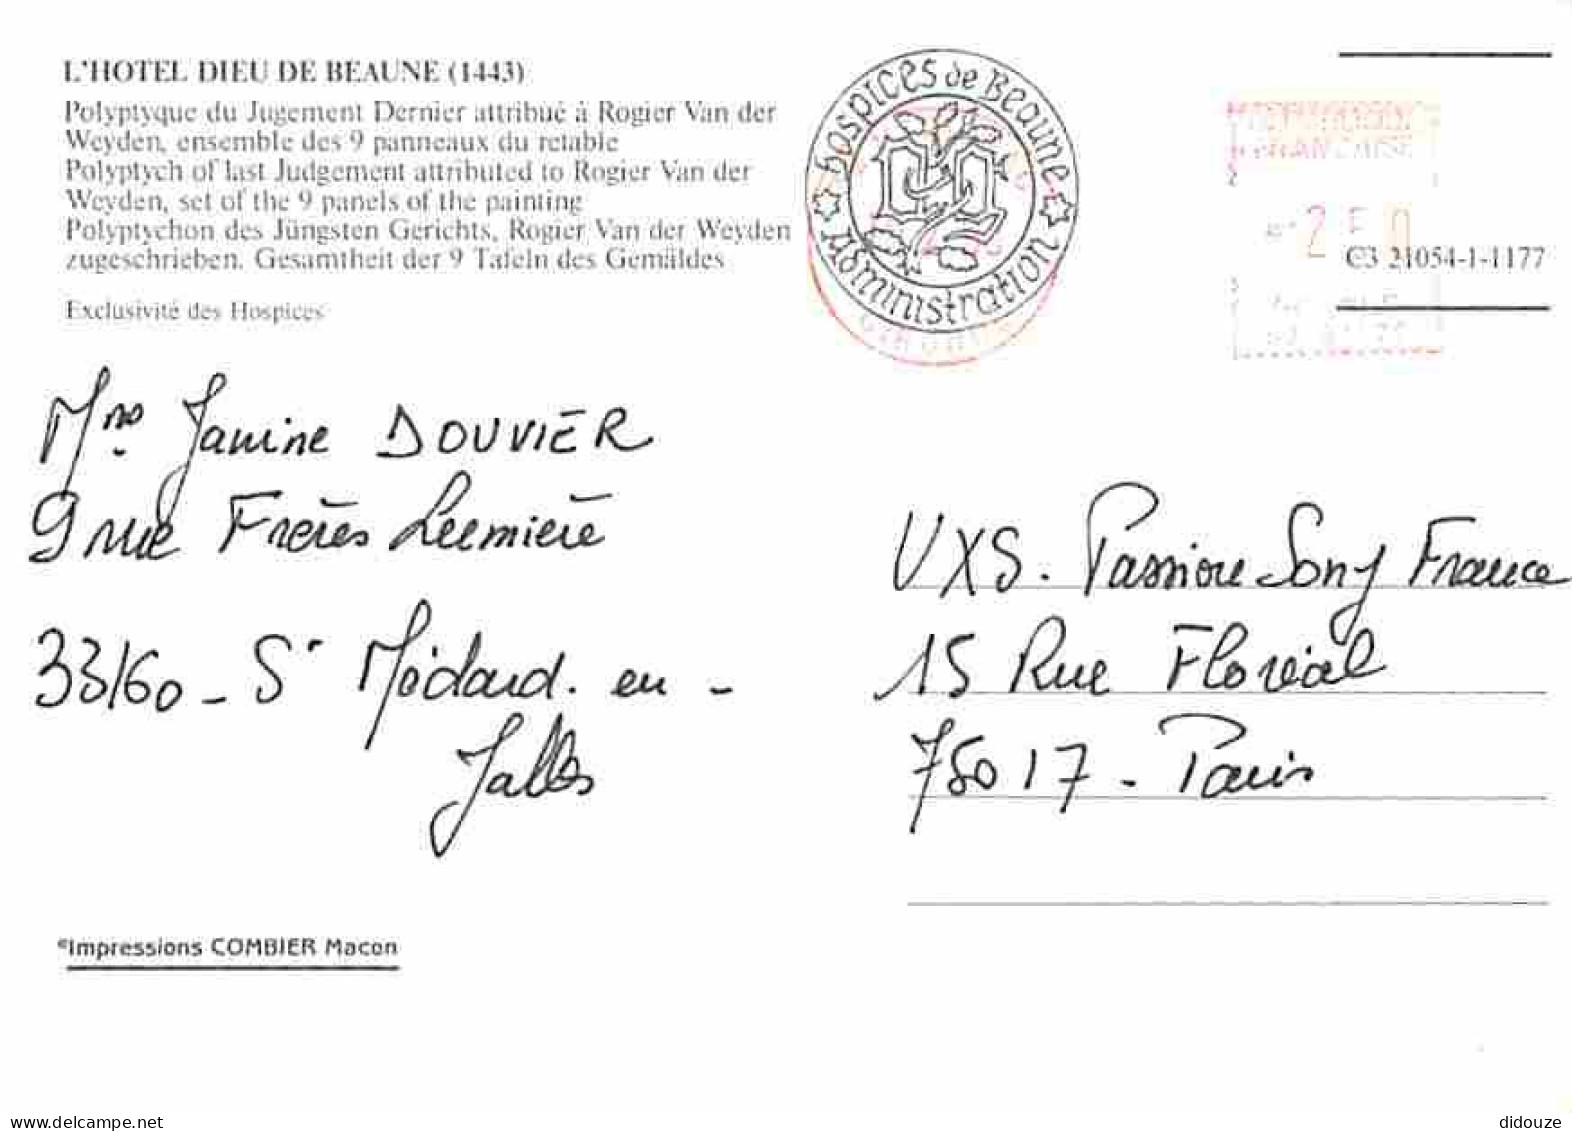 L'HOTEL DIEU DE BEAUNE (1443)
Polyptyque du Jugement Dernier attribué à Rogier Van der
Weyden, ensemble des 9 panneaux du retable
Polyptych of last Judgement attributed to Rogier Van der
Weyden, set of the 9 panels of the painting
Polyptychon des Jüngsten Gerichts, Rogier Van der Weyden
zugeschrieben. Gesamtheit der 9 Tafeln des Gemäldes
Exclusivité des Hospices
hospices de Beaune
administration
FRANCAISE
C3 21054-1-1177
Mme Janine DOUVIER
9 rue Frères Lumière
33160 - St Médard. en -
Jalles
UXS. Passion Sony France
15 Rue Floréal
75017 - Paris
©Impressions COMBIER Macon
delcampe.net
didouze